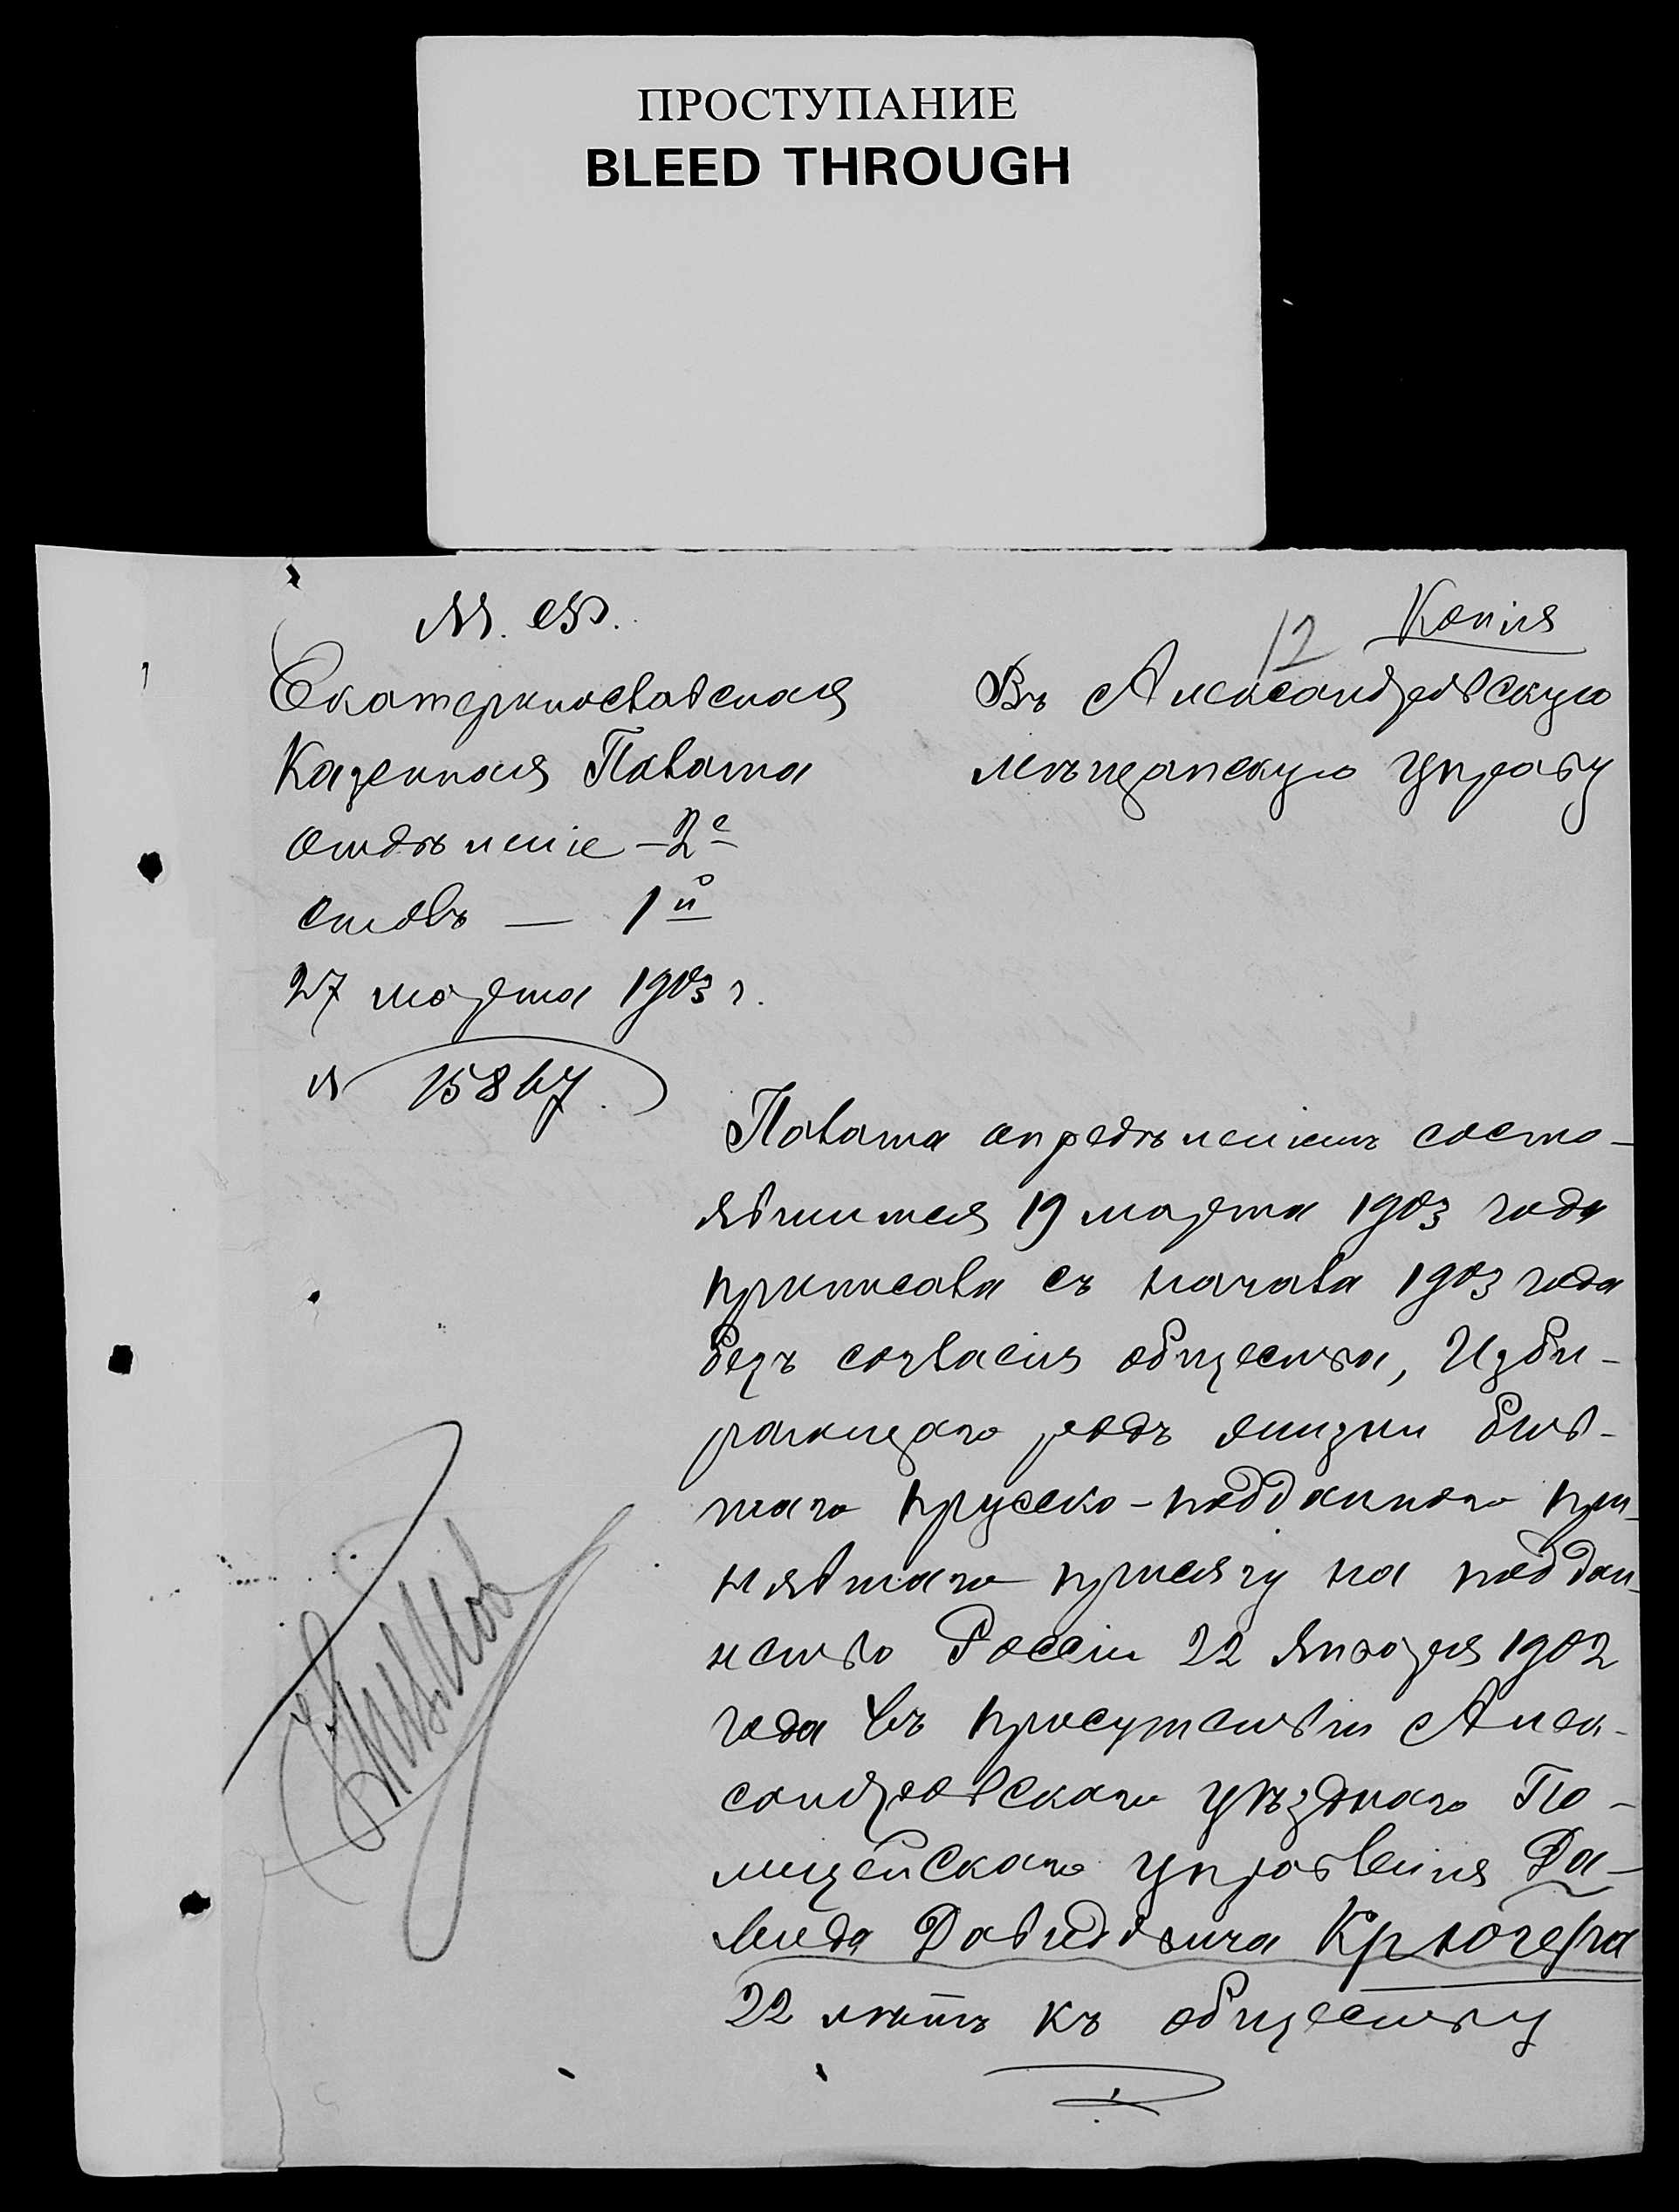 ПРОСТУПАНИЕ
BLEED THROUGH
М. Ф.
Копія
12
Екатеринославская
Казенная Палата
отдѣленіе – 2е
столъ — 1й
27 марта 1903 г.
№ 15867.
Въ Александровскую
мѣщанскую управу
Палата опредѣленіемъ состо-
явшимся 19 марта 1903 года
приписала съ начала 1903 года
безъ согласія общества, Изби-
рающаго родъ жизни быв-
шаго прусско-подданного при-
нявшаго присягу на поддан-
нство Россіи 22 Января 1902
года въ присутствіи Алек-
сандровскаго уѣзднаго По-
лицейскаго управленія Да-
вида Давидовича Крюгера
22 лѣтъ къ обществу